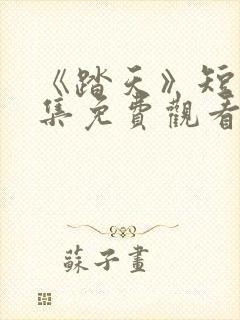 《踏天》短
集免費觀看
蘇子畫